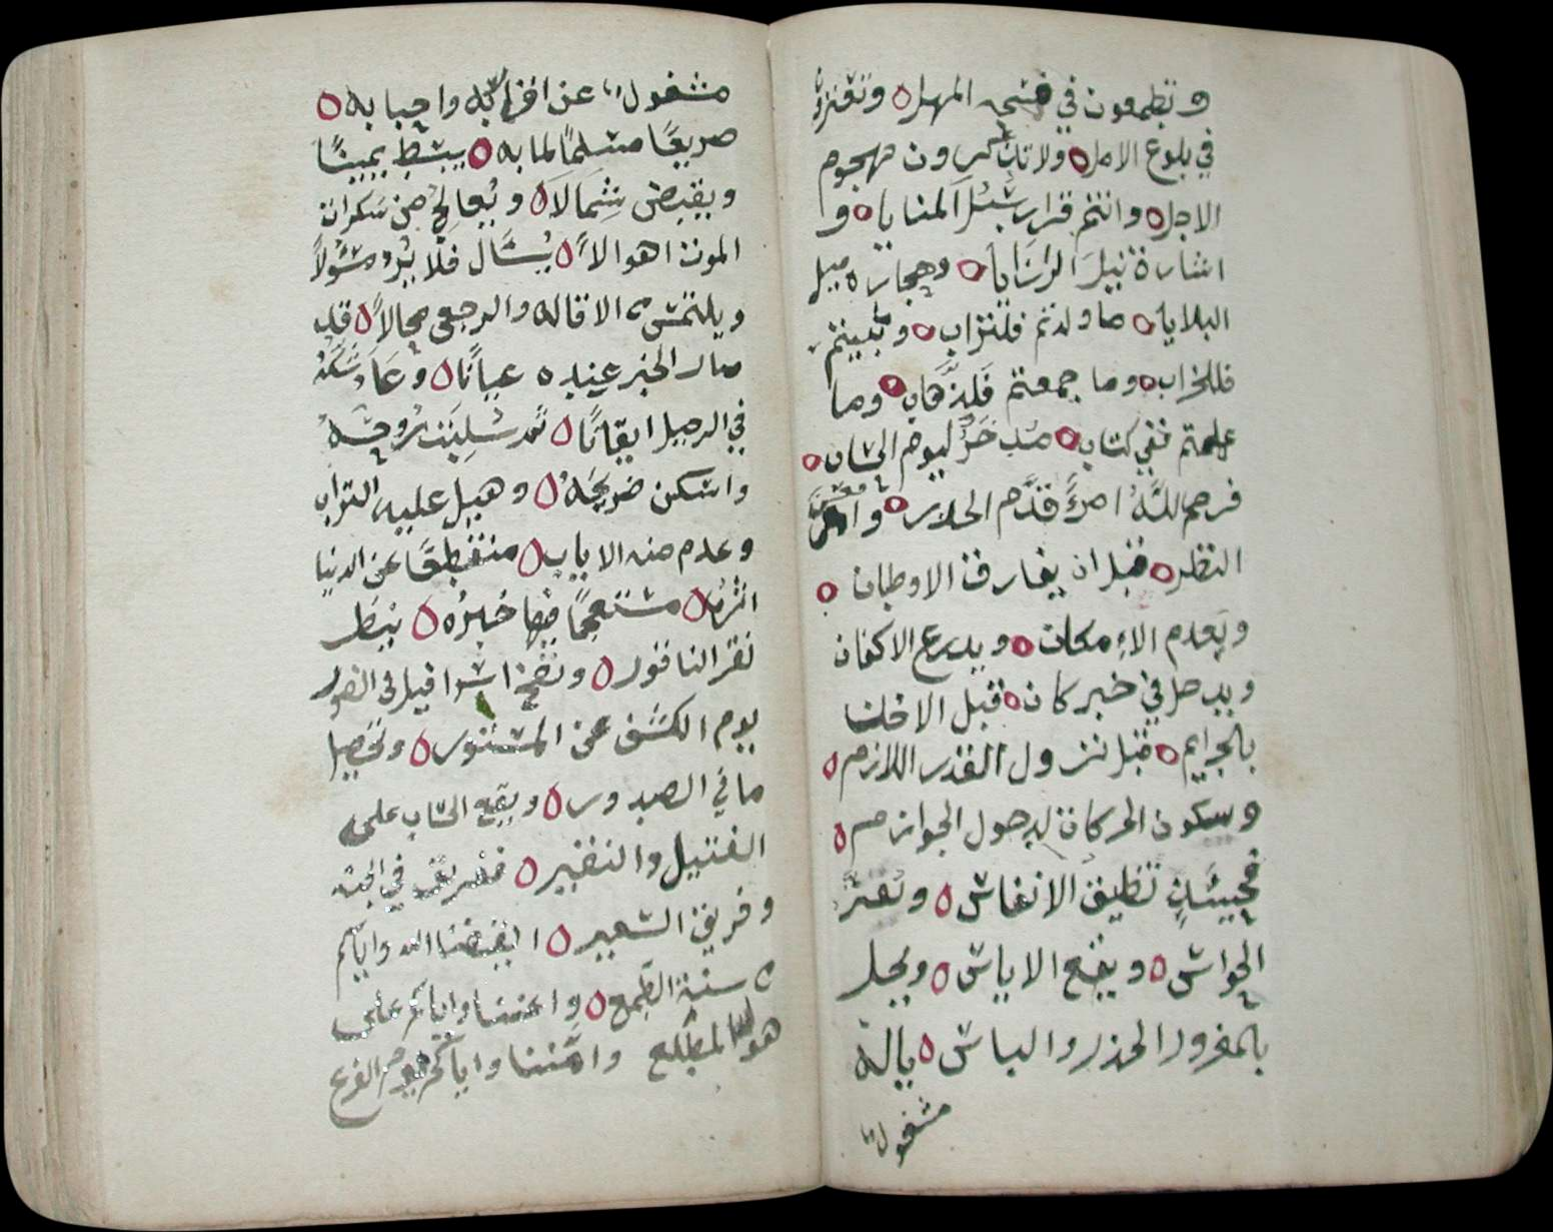 وتطمعون في فسحه المهل ٥ وتغترون
في بلوغ الامل ٥ ولا تذكرون هجوم
الاجل ٥ وانتم قرار سبل المنايا ٥ و
اشارة نبل الرزايا ٥ وحجاره ميل
البلايا ٥ ما ولدتم فللتراب ٥ وما بنيتم
فللخراب ٥ وما جمعتم فللذهاب ٥ وما
علمتم ففي كتاب ٥ مدخر ليوم الحساب ٥
فرحم اللّه امرءً قدم الحذر ٥ وامعن
النظر ٥ قبل ان يفارق الاوطان ٥
ويعدم الامكان ٥ ويدرع الاكفان
ويدخل في خبر كان ٥ قبل الاخذ
بالجرايم ٥ قبل نزول القدر اللازم ٥
وسكون الحركات لدخول الجوازم ٥
فحينئذٍ تضيق الانفاس ٥ وتفتر
الحواس ٥ ويقع الاياس ٥ ويحل
بالمغرور الحذر والباس ٥ ياله
مشغولا
مشغولا عن اقرابه واحبابه ٥
صريعًا مسلمًا لما به ٥ يبسط يمينًا
ويقبض شمالا ٥ ويعالج من سكرات
الموت اهوالا ٥ يسال فلا يرد سؤلاً
ويلتمس الاقاله والرجعى محالاً ٥ قد
صار الخبر عنده عيانًا ٥ وعاد شكه
في الرحيل ايقانًا ٥ ثم سلبت روحه
واسكن ضريحه ٥ وهيل عليه التراب
وعدم منه الاياب ٥ منقطعًا عن الدنيا
اثره ٥ مستعجمًا فيها خبره ٥ ينتظر
نقر الناقور ٥ ونفخ اسرافيل في الصور
يوم الكشف عن المستور ٥ وتحصيل
ما في الصدور ٥ ويقع الحساب على
الفتيل والنقير ٥ ففريق في الجنه
وفريق السعير ٥ ايقضنا الله واياكم
من سنة الطمع ٥ واعننا واياكم على
هول المطلع وامننا واياكم يوم الفزع